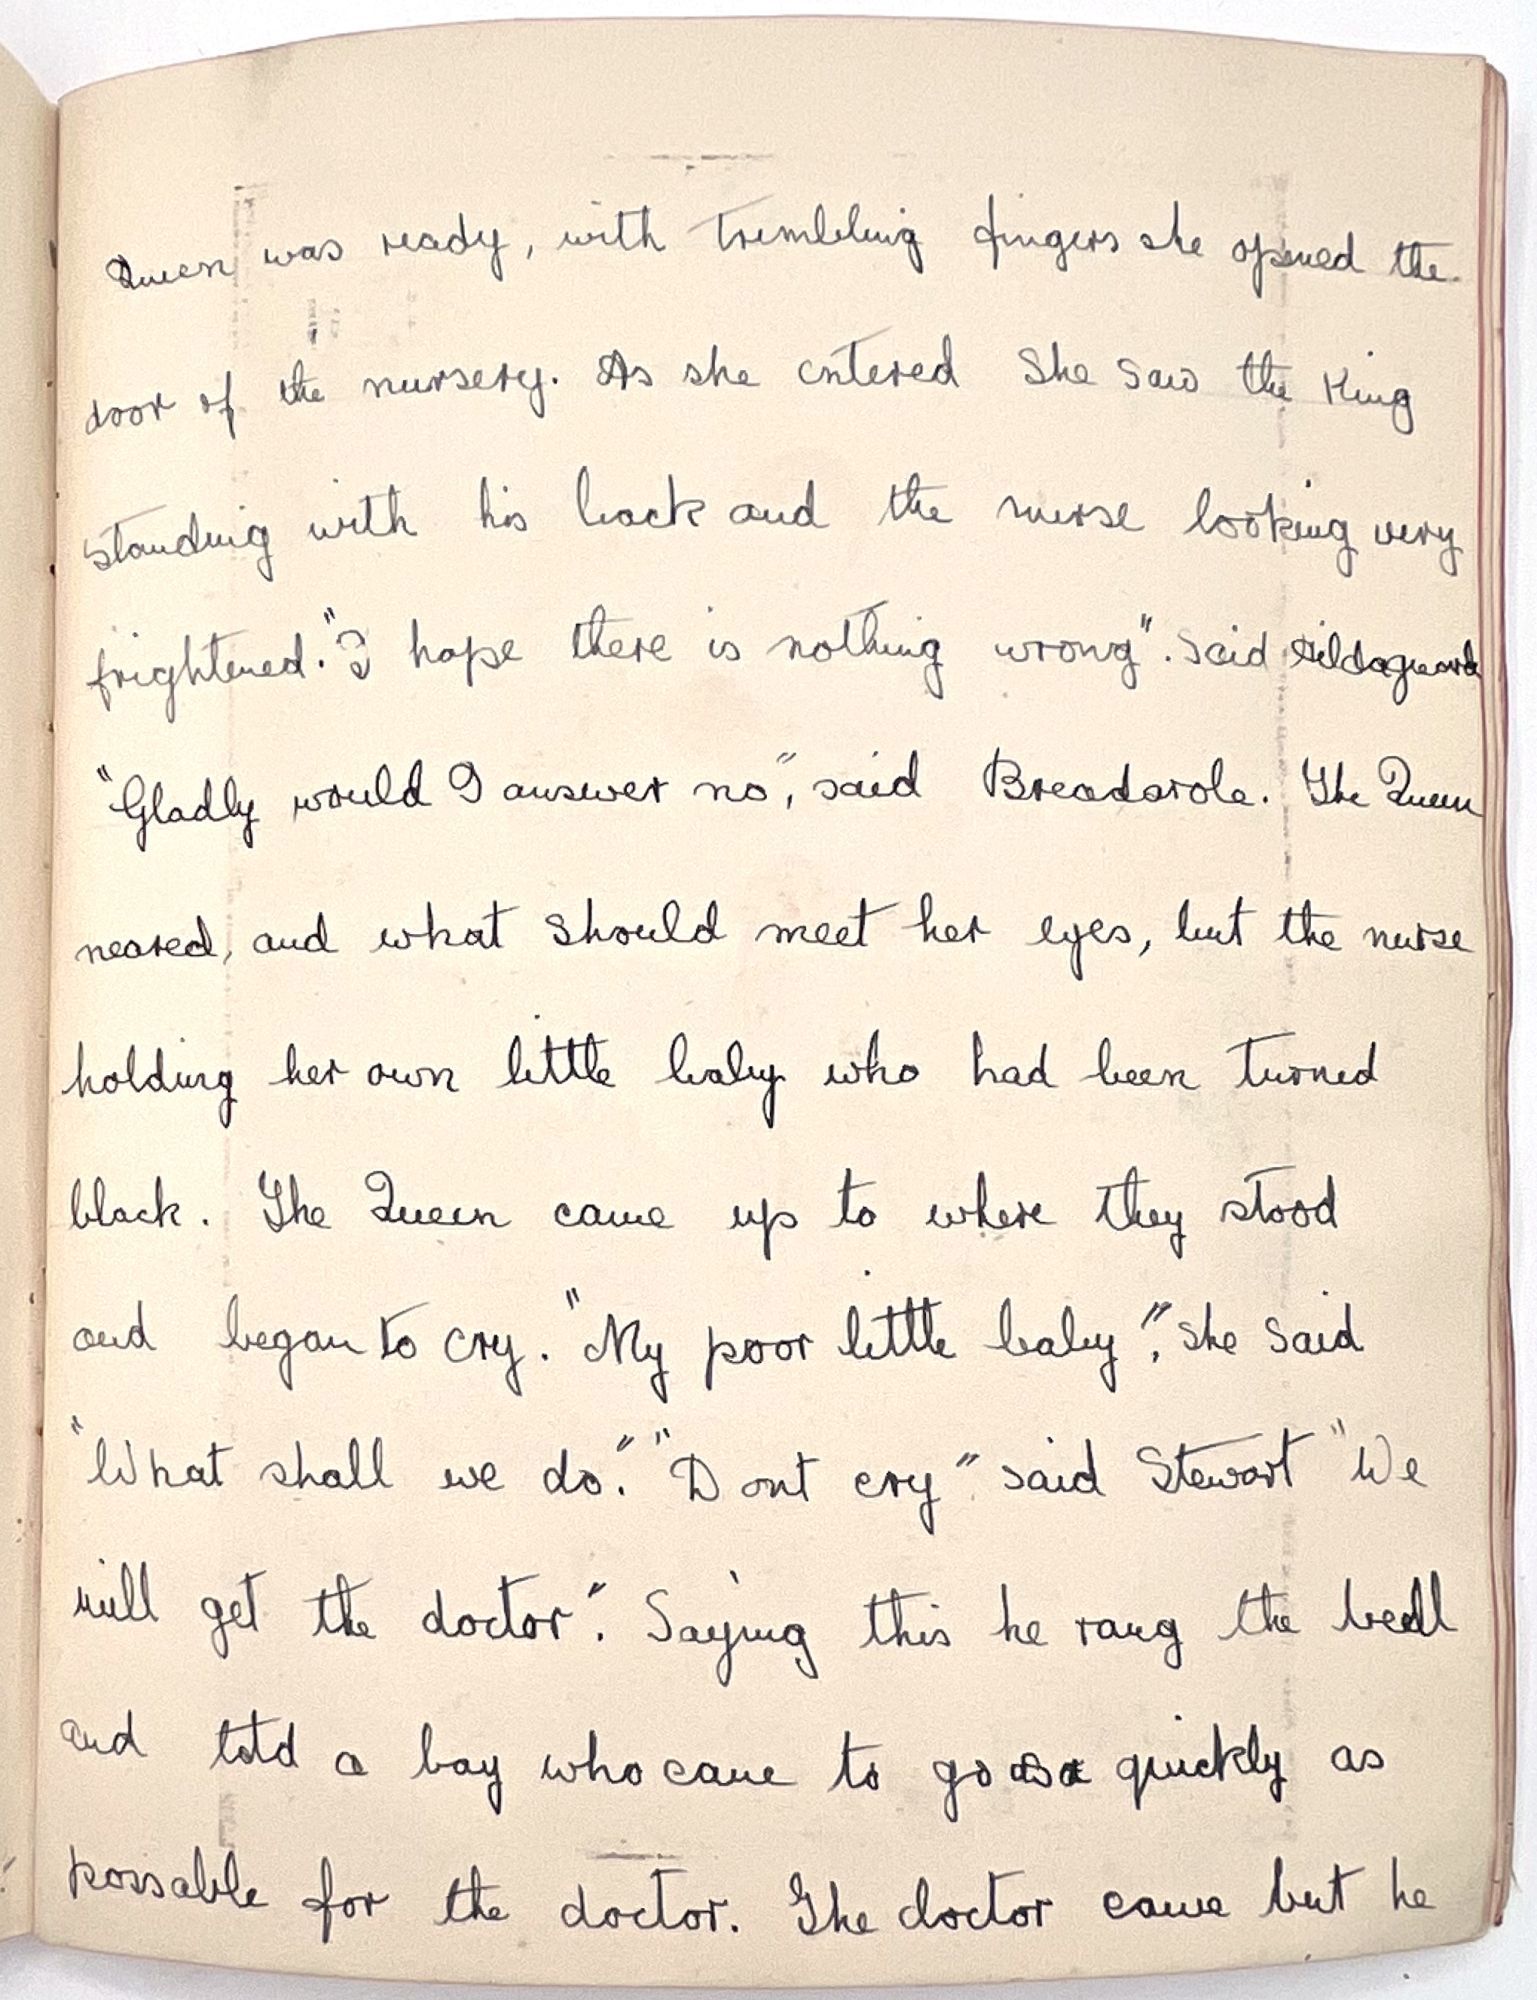 Queen was ready, with trembling fingers she opened the
door of the nursery. As she entered she saw the King
standing with his back and the nurse looking very
frightened. "I hope there is nothing wrong". said Hildaguard
"Gladly would I answer no", said Breadarole. The Queen
neared, and what should meet her eyes, but the nurse
holding her own little baby who had been turned
black. The Queen came up to where they stood
and began to cry. "My poor little baby", she said
"What shall we do." "Dont cry" said Stewart "We
will get the doctor". Saying this he rang the bell
and told a boy who came to go as quickly as
possable for the doctor. The doctor came but he